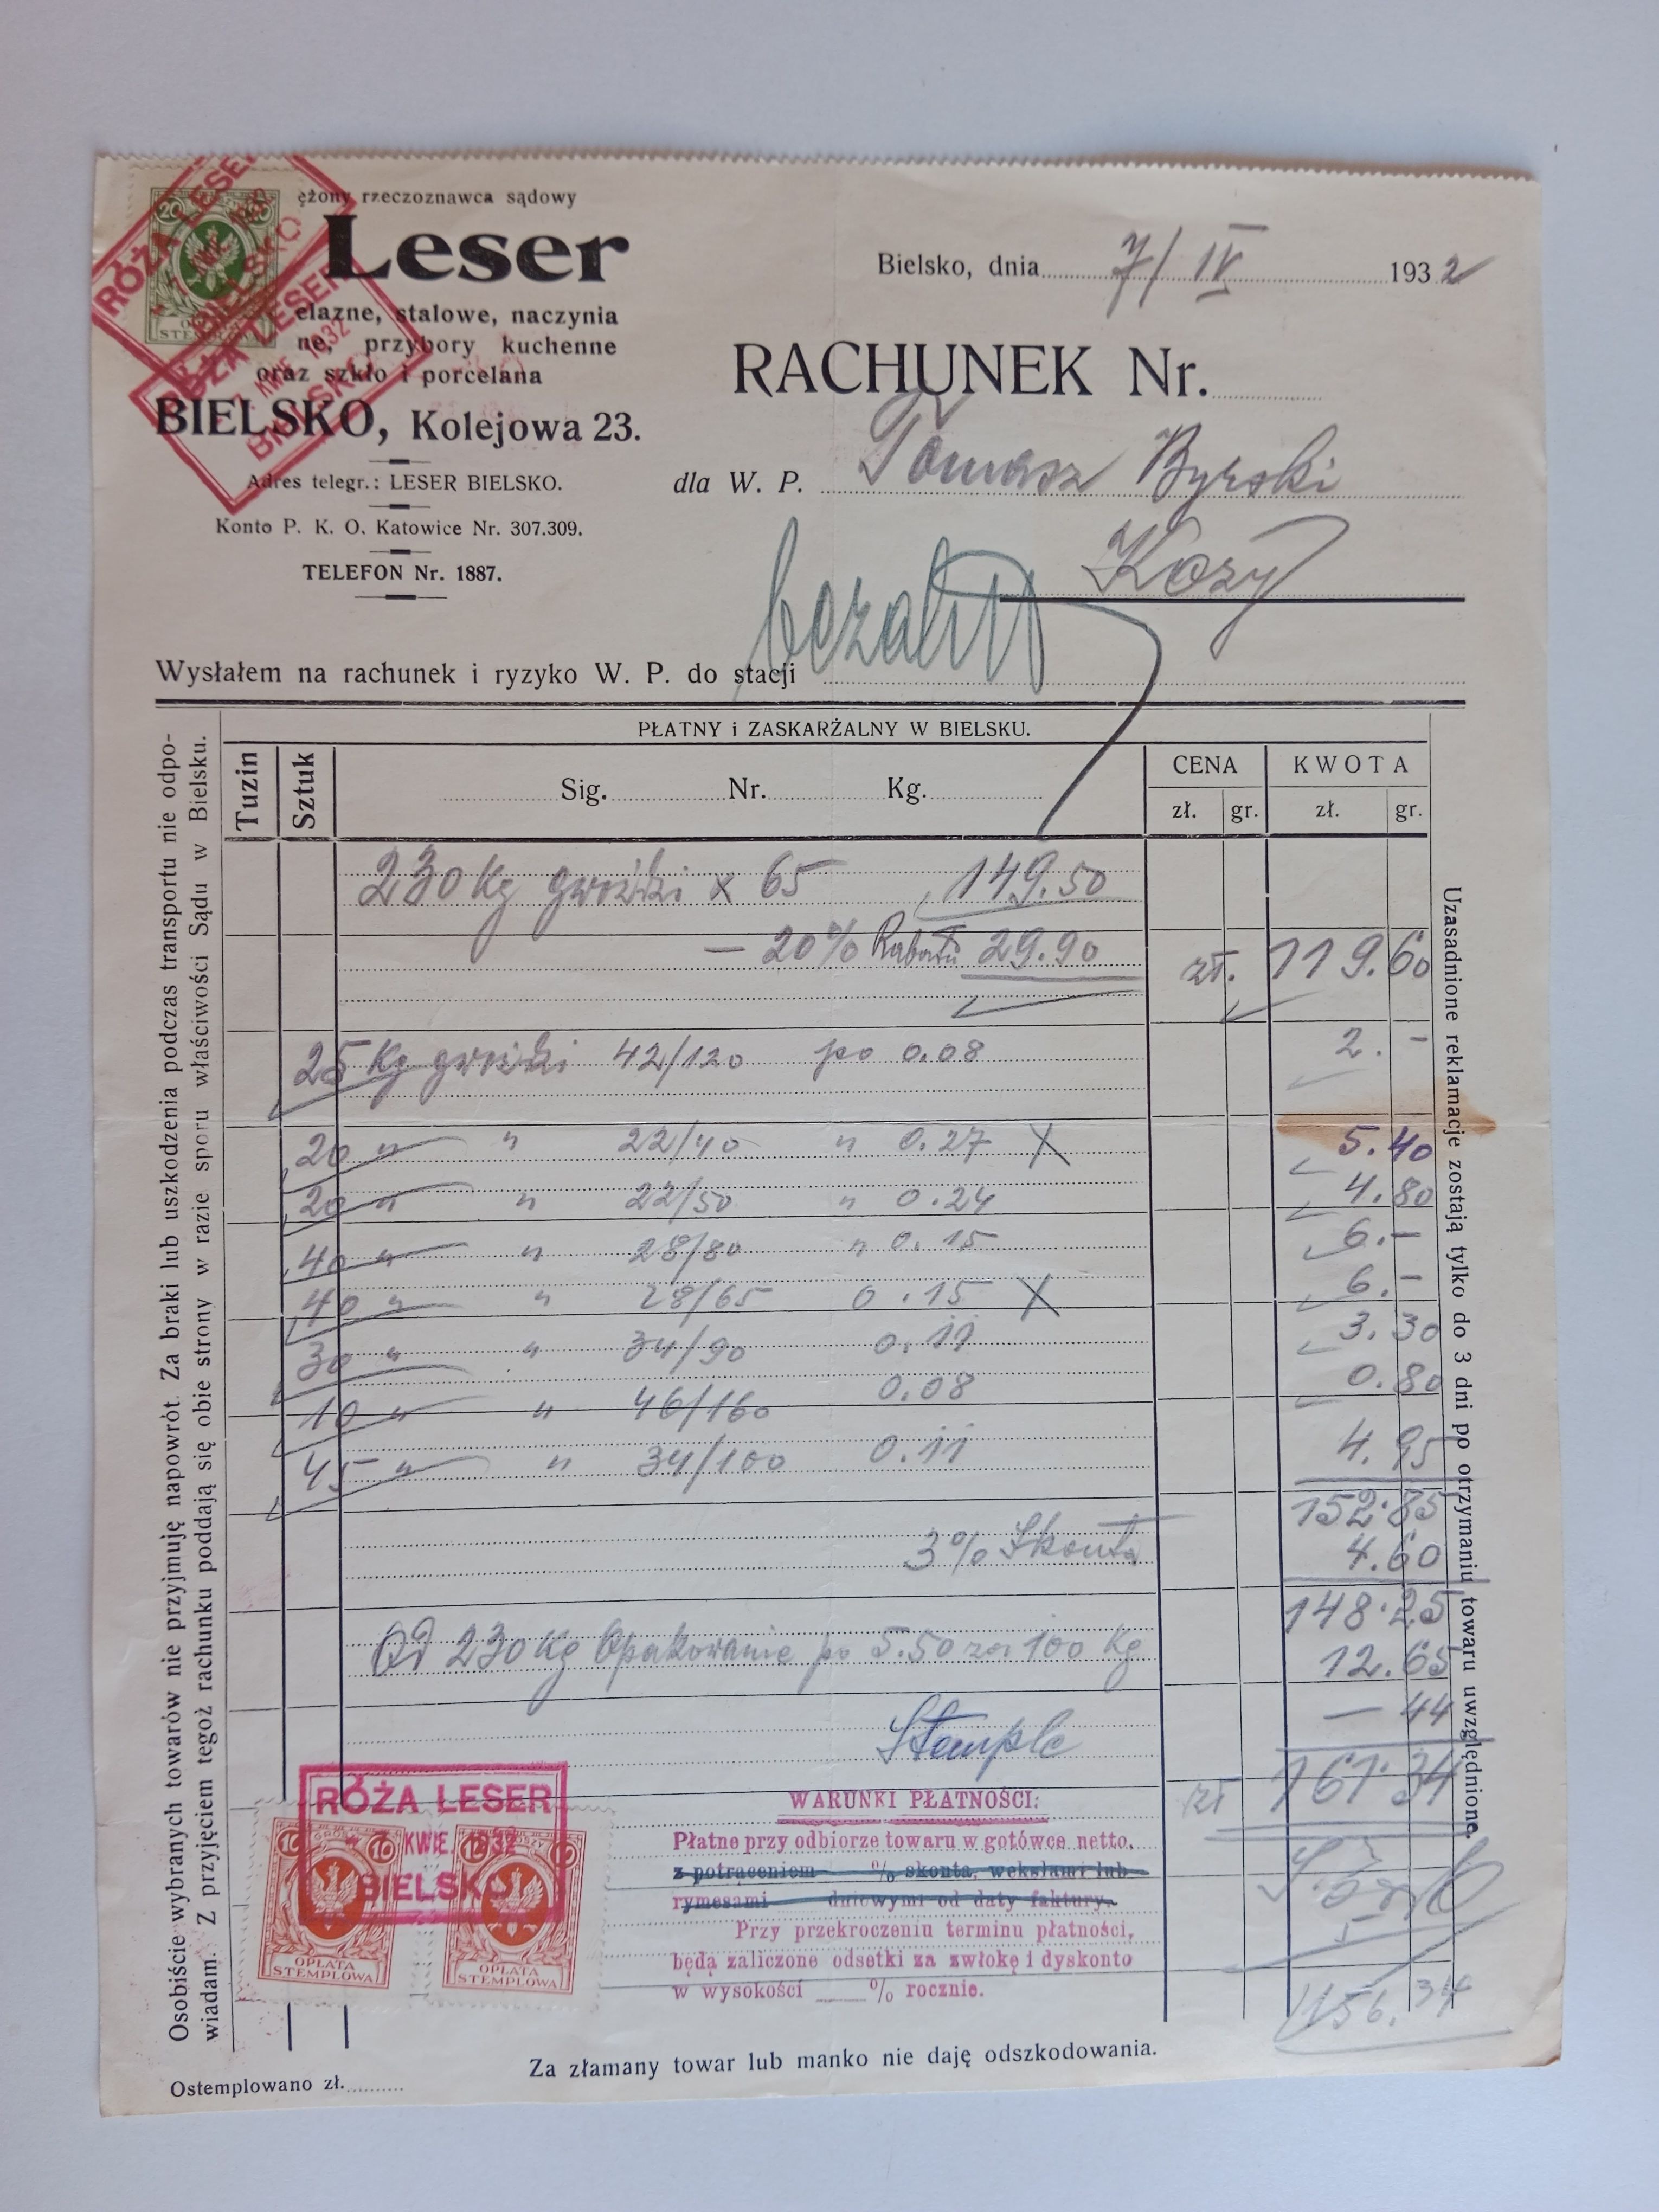 ężony rzeczoznawca sądowy
Leser
elazne, stalowe, naczynia
ne, przybory kuchenne
oraz szkło i porcelana
BIELSKO, Kolejowa 23.
Adres telegr.: LESER BIELSKO.
Konto P. K. O. Katowice Nr. 307.309.
TELEFON Nr. 1887.
20
RÓŻA LESER
BIELSKO
RÓŻA LESER
7. KWIE. 1932
BIELSKO
Bielsko, dnia 7/IV 1932
RACHUNEK Nr.
dla W. P. Tomasz Byrski
Kozy
Wysłałem na rachunek i ryzyko W. P. do stacji
PŁATNY i ZASKARŻALNY W BIELSKU.
Tuzin Sztuk Sig. Nr. Kg. CENA KWOTA
zł. gr. zł. gr.
230 Kg gwoździ x 65 149.50
— 20% Rabatu 29.90 zł. 119.60
25 Kg gwoździ 42/120 po 0.08 2.-
20 " " 22/40 " 0.27 X 5.40
20 " " 22/50 " 0.24 4.80
40 " " 28/80 " 0.15 6.-
40 " " 28/65 0.15 X 6.-
30 " " 34/90 0.11 3.30
10 " " 46/160 0.08 0.80
45 " " 34/100 0.11 4.95
152.85
3% Skonta 4.60
148.25
Od 230 Kg Opakowanie po 5.50 za 100 Kg 12.65
Stemple — 44
zł 161.34
5
156.34
RÓŻA LESER
KWIE. 1932
BIELSKO
10 GROSZY 10
OPŁATA STEMPLOWA
OPŁATA STEMPLOWA
WARUNKI PŁATNOŚCI:
Płatne przy odbiorze towaru w gotówce netto.
z potrąceniem % skonta, wekslami lub
rymesami dniowymi od daty faktury.
Przy przekroczeniu terminu płatności,
będą zaliczone odsetki za zwłokę i dyskonto
w wysokości ___ % rocznie.
Za złamany towar lub manko nie daję odszkodowania.
Ostemplowano zł.
Osobiście wybranych towarów nie przyjmuję napowrót. Za braki lub uszkodzenia podczas transportu nie odpo-
wiadam. Z przyjęciem tegoż rachunku poddają się obie strony w razie sporu właściwości Sądu w Bielsku.
Uzasadnione reklamacje zostają tylko do 3 dni po otrzymaniu towaru uwzględnione.